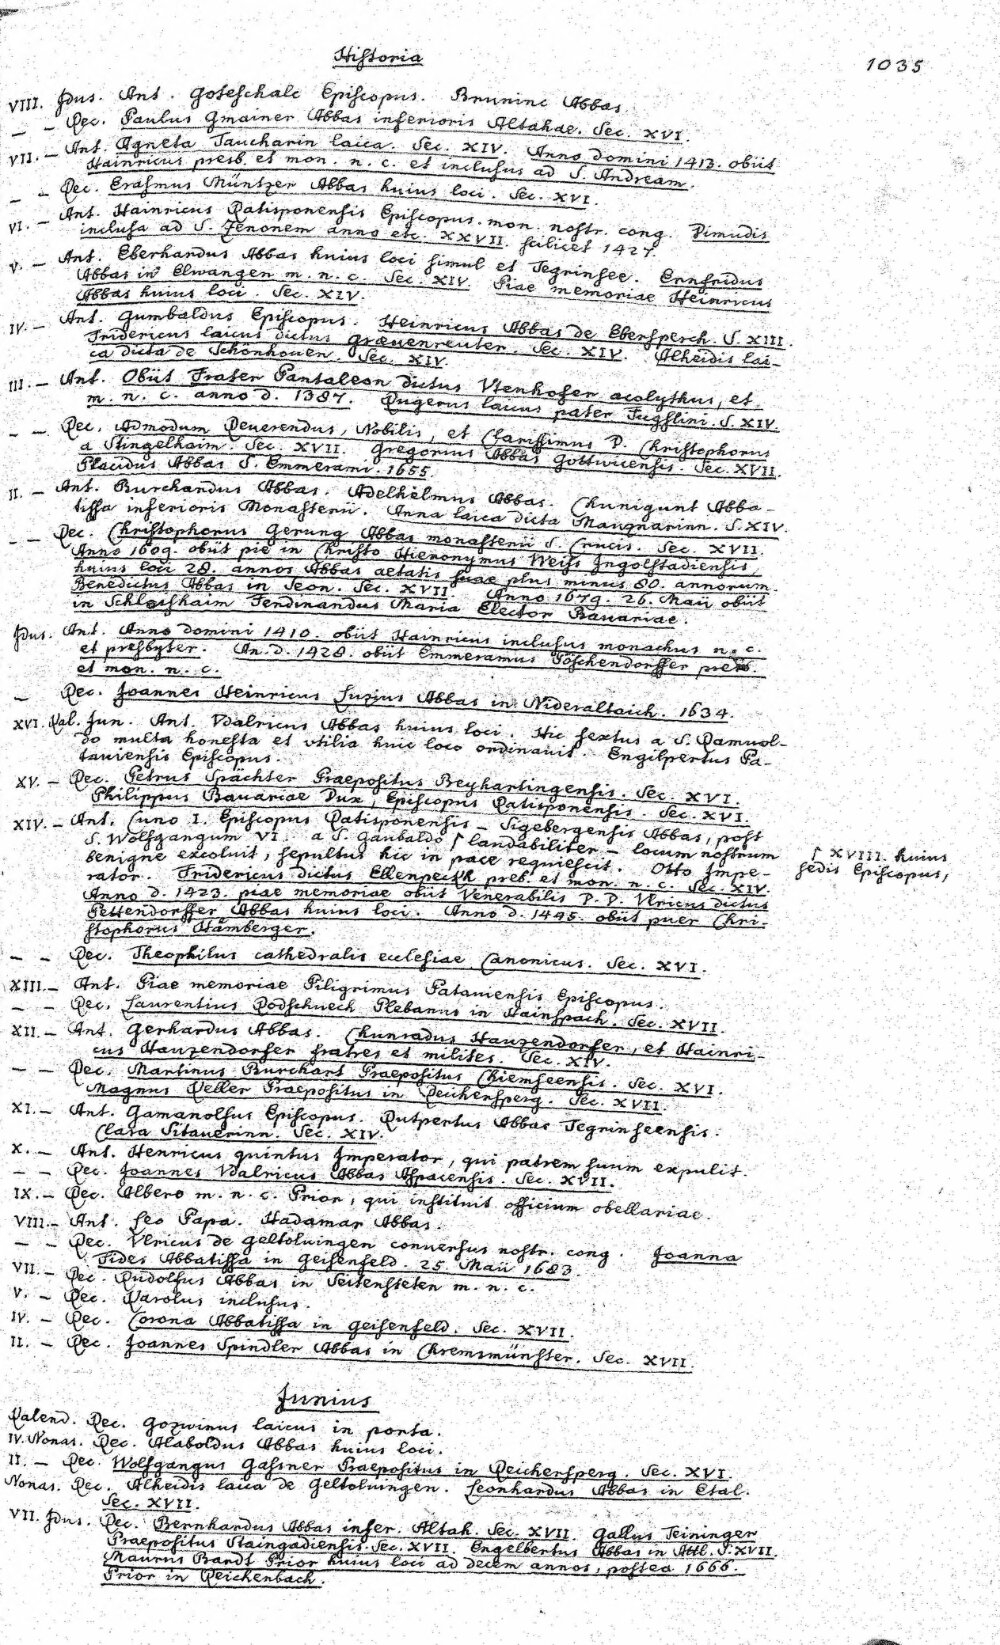 Historia
1035
VIII. Idus. Ant. Goteschalc Episcopus. Bruninc Abbas.
– – Rec. Paulus Gmainer Abbas inferioris Altahae. Sec. XVI.
VII. – Ant. Agneta Taucharin laica. Sec. XIV. Anno domini 1413. obiit
Hainricus presb. et mon. n. c. et inclusus ad S. Andream.
– Rec. Erasmus Müntzer Abbas huius loci. Sec. XVI.
VI. – Ant. Hainricus Ratisponensis Episcopus. mon. nostr. cong. Dimudis
inclusa ad S. Zenonem anno etc. XXVII. scilicet 1427.
V. – Ant. Eberhardus Abbas huius loci simul et Tegrinsee. Ernfridus
Abbas in Elwangen m. n. c. Sec. XIV. Piae memoriae Heinricus
Abbas huius loci. Sec. XIV.
IV. – Ant. Gumbaldus Episcopus. Heinricus Abbas de Ebersperch. S. XIII.
Fridericus laicus dictus Grævenreuter. Sec. XIV. Alheidis lai-
ca dicta de Schönhouen. Sec. XIV.
III. – Ant. Obiit Frater Pantaleon dictus Vtenhofer acolythus, et
m. n. c. anno d. 1387. Rugerus laicus pater Fugslini. S. XIV.
– – Rec. Admodum Reverendus, Nobilis, et Clarissimus D. Christophorus
a Stingelhaim. Sec. XVII. Gregorius Abbas Gottvicensis. Sec. XVII.
Placidus Abbas S. Emmerami. 1655.
II. – Ant. Burchardus Abbas. Adelhelmus Abbas. Chunigunt Abba-
tissa inferioris Monasterii. Anna laica dicta Maugnarinn. S. XIV.
– – Rec. Christophorus Gerung Abbas monasterii S. Crucis. Sec. XVII.
Anno 1609. obiit pie in Christo Hieronymus Weiss Ingolstadiensis,
huius loci 28. annos Abbas aetatis suae plus minus 80. annorum.
Benedictus Abbas in Seon. Sec. XVII. Anno 1679. 26. Maii obiit
in Schleisshaim Ferdinandus Maria Elector Bavariae.
Idus. Ant. Anno domini 1410. obiit Hainricus inclusus monachus n. c.
et presbyter. An. d. 1428. obiit Emmeramus Töschendorffer presb.
et mon. n. c.
– Rec. Joannes Heinricus Luzius Abbas in Nideraltaich. 1634.
XVI. Kal. Jun. Ant. Vdalricus Abbas huius loci. Hic sextus a S. Ramuol-
do multa honesta et vtilia huic loco ordinavit. Engilpertus Pa-
taviensis Episcopus.
XV. – Rec. Petrus Spächter Praepositus Beyhartingensis. Sec. XVI.
Philippus Bavariae Dux, Episcopus Ratisponensis. Sec. XVI.
XIV. – Ant. Cuno I. Episcopus Ratisponensis – Sigebergensis Abbas, post
S. Wolfgangum VI. a S. Gaubaldo ſ laudabiliter – locum nostrum
benigne excoluit, sepultus hic in pace requiescit. Otto Impe-
ſ XVIII. huius
sedis Episcopus,
rator. Fridericus dictus Ellenpeckh presb. et mon. n. c. Sec. XIV.
Anno d. 1423. piae memoriae obiit Venerabilis P. D. Vlricus dictus
Pettendorffer Abbas huius loci. Anno d. 1445. obiit puer Chri-
stophorus Hamberger.
– – Rec. Theophilus cathedralis ecclesiae Canonicus. Sec. XVI.
XIII. – Ant. Piae memoriae Piligrimus Pataviensis Episcopus.
– – Rec. Laurentius Rodschueck Plebanus in Hainspach. Sec. XVII.
XII. – Ant. Gerhardus Abbas. Chunradus Hauzendorfer, et Hainri-
cus Hauzendorfer fratres et milites. Sec. XIV.
– – Rec. Martinus Burchart Praepositus Chiemseensis. Sec. XVI.
Magnus Keller Praepositus in Reichersperg. Sec. XVII.
XI. – Ant. Gamanolfus Episcopus. Rutpertus Abbas Tegrinseensis.
Clara Sitauerinn. Sec. XIV.
X. – Ant. Henricus quintus Imperator, qui patrem suum expulit.
– – Rec. Joannes Vdalricus Abbas Aspacensis. Sec. XVII.
IX. – Rec. Albero m. n. c. Prior, qui instituit officium obellariae.
VIII. – Ant. Leo Papa. Hadamar Abbas.
– – Rec. Vlricus de Geltolvingen conversus nostr. cong. Joanna
Fides Abbatissa in Geisenfeld. 25. Maii 1683.
VII. – Rec. Rudolfus Abbas in Seitensteten m. n. c.
V. – Rec. Karolus inclusus.
IV. – Rec. Corona Abbatissa in Geisenfeld. Sec. XVII.
II. – Rec. Joannes Spindler Abbas in Chremsmünster. Sec. XVII.
Junius
Kalend. Rec. Gozwinus laicus in porta.
IV. Nonas. Rec. Alaboldus Abbas huius loci.
II. – Rec. Wolfgangus Gassner Praepositus in Reichersperg. Sec. XVI.
Nonas. Rec. Alheidis laica de Geltolvingen. Leonhardus Abbas in Etal.
Sec. XVII.
VII. Idus. Rec. Bernhardus Abbas infer. Altah. Sec. XVII. Gallus Teininger
Praepositus Staingadiensis. Sec. XVII. Engelbertus Abbas in Attl. S. XVII.
Maurus Bardt Prior huius loci ad decem annos, postea 1666.
Prior in Reichenbach.